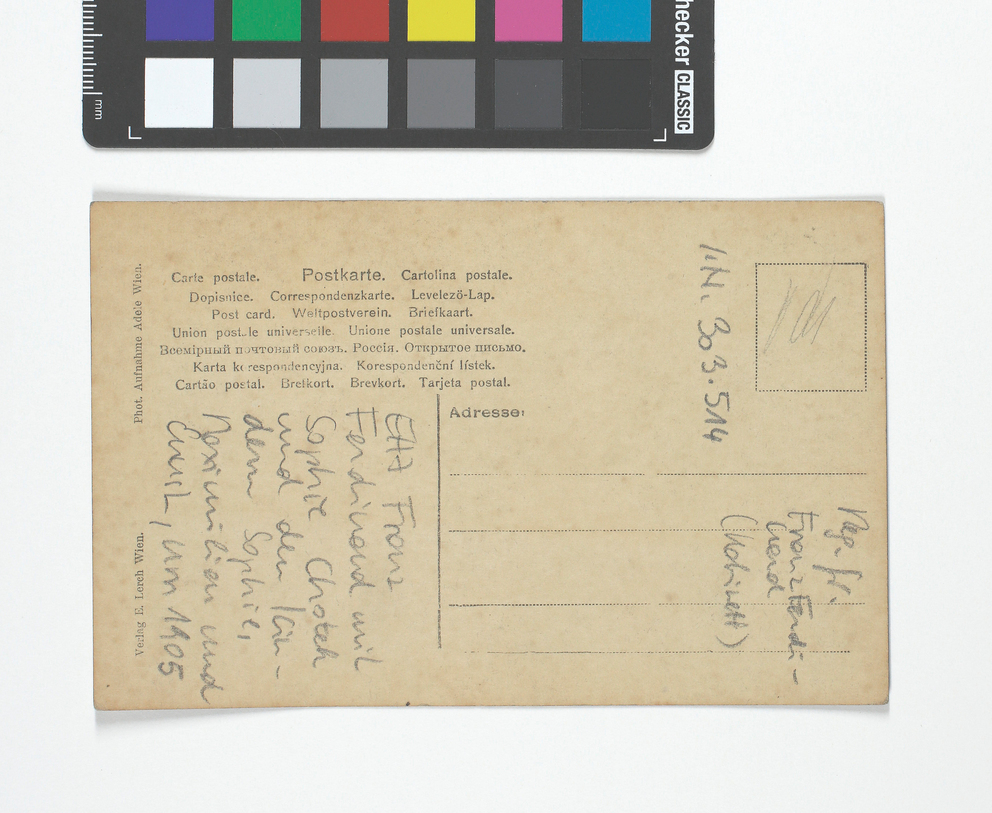 hecker CLASSIC
mm
Carte postale. Postkarte. Cartolina postale.
Dopisnice. Correspondenzkarte. Levelező-Lap.
Post card. Weltpostverein. Briefkaart.
Union postale universelle. Unione postale universale.
Всемірный почтовый союзъ. Россія. Открытое письмо.
Karta korespondencyjna. Korespondenční lístek.
Cartão postal. Brefkort. Brevkort. Tarjeta postal.
Adresse:
Phot. Aufnahme Adele Wien.
Verlag E. Lerch Wien.
EHZ Franz
Ferdinand mit
Sophie Chotek
und den Kin-
dern Sophie,
Maximilian und
Ernst, um 1905
I.N. 303.514
Franz Ferdi-
nand
(Kabinett)